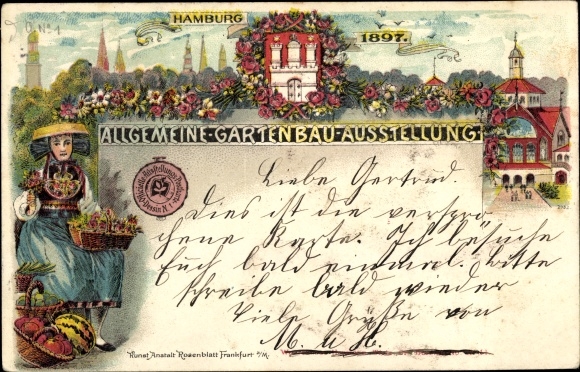 HAMBURG
1897.
ALLGEMEINE-GARTENBAU-AUSSTELLUNG.
Liebe Gertrud.
Dies ist die verspro
chene Karte. Ich besuche
Euch bald einmal. bitte
schreibe bald wieder
Viele Grüße von
M. u H.
Kunst Anstalt Rosenblatt Frankfurt a/M.